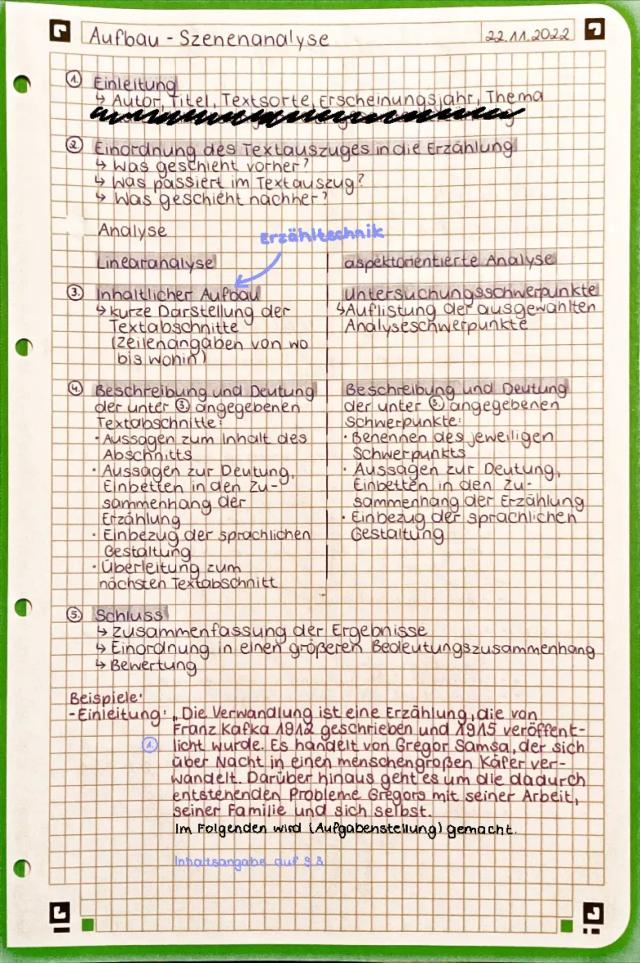 Aufbau - Szenenanalyse
22.11.2022
① Einleitung
↳ Autor, Titel, Textsorte, Erscheinungsjahr, Thema
② Einordnung des Textauszuges in die Erzählung
↳ Was geschieht vorher?
↳ Was passiert im Textauszug?
↳ Was geschieht nachher?
Analyse
Erzähltechnik
Linearanalyse
③ Inhaltlicher Aufbau
↳ kurze Darstellung der
Textabschnitte
(Zeilenangaben von wo
bis wohin)
④ Beschreibung und Deutung
der unter ③ angegebenen
Textabschnitte:
· Aussagen zum Inhalt des
Abschnitts
· Aussagen zur Deutung,
Einbetten in den Zu-
sammenhang der
Erzählung
· Einbezug der sprachlichen
Gestaltung
· Überleitung zum
nächsten Textabschnitt
aspektorientierte Analyse
Untersuchungsschwerpunkte
↳ Auflistung der ausgewählten
Analyseschwerpunkte
Beschreibung und Deutung
der unter ③ angegebenen
Schwerpunkte:
· Benennen des jeweiligen
Schwerpunkts
· Aussagen zur Deutung,
Einbetten in den Zu-
sammenhang der Erzählung
· Einbezug der sprachlichen
Gestaltung
⑤ Schluss
↳ Zusammenfassung der Ergebnisse
↳ Einordnung in einen größeren Bedeutungszusammenhang
↳ Bewertung
Beispiele:
- Einleitung: „Die Verwandlung ist eine Erzählung, die von
Franz Kafka 1912 geschrieben und 1915 veröffent-
① licht wurde. Es handelt von Gregor Samsa, der sich
über Nacht in einen menschengroßen Käfer ver-
wandelt. Darüber hinaus geht es um die dadurch
entstehenden Probleme Gregors mit seiner Arbeit,
seiner Familie und sich selbst.
Im Folgenden wird (Aufgabenstellung) gemacht.
Inhaltsangabe auf S.